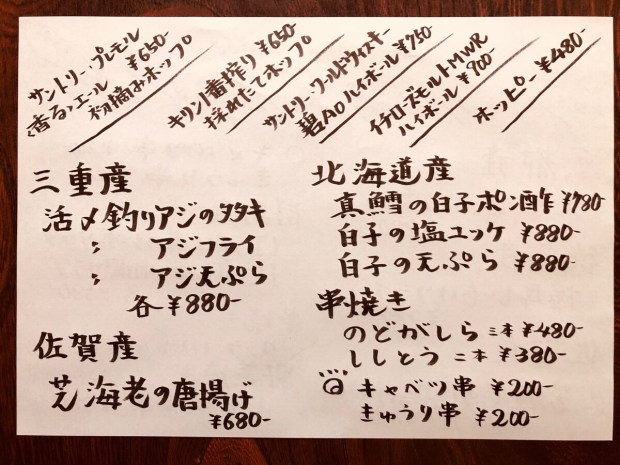 サントリー・プレモル
〈香る〉エール ¥650-
初摘みホップ
キリン一番搾り ¥650-
採れたてホップ
サントリー・ワールドウィスキー
碧Aoハイボール ¥750-
イチローズモルトMWR
ハイボール ¥900-
ホッピー ¥480-
三重産
活〆釣りアジのタタキ
〃 アジフライ
〃 アジ天ぷら
各 ¥880-
佐賀産
芝海老の唐揚げ
¥680-
北海道産
真鱈の白子ポン酢 ¥780-
白子の塩ユッケ ¥880-
白子の天ぷら ¥880-
串焼き
のどがしら 三本 ¥480-
ししとう 二本 ¥380-
キャベツ串 ¥200-
きゅうり串 ¥200-